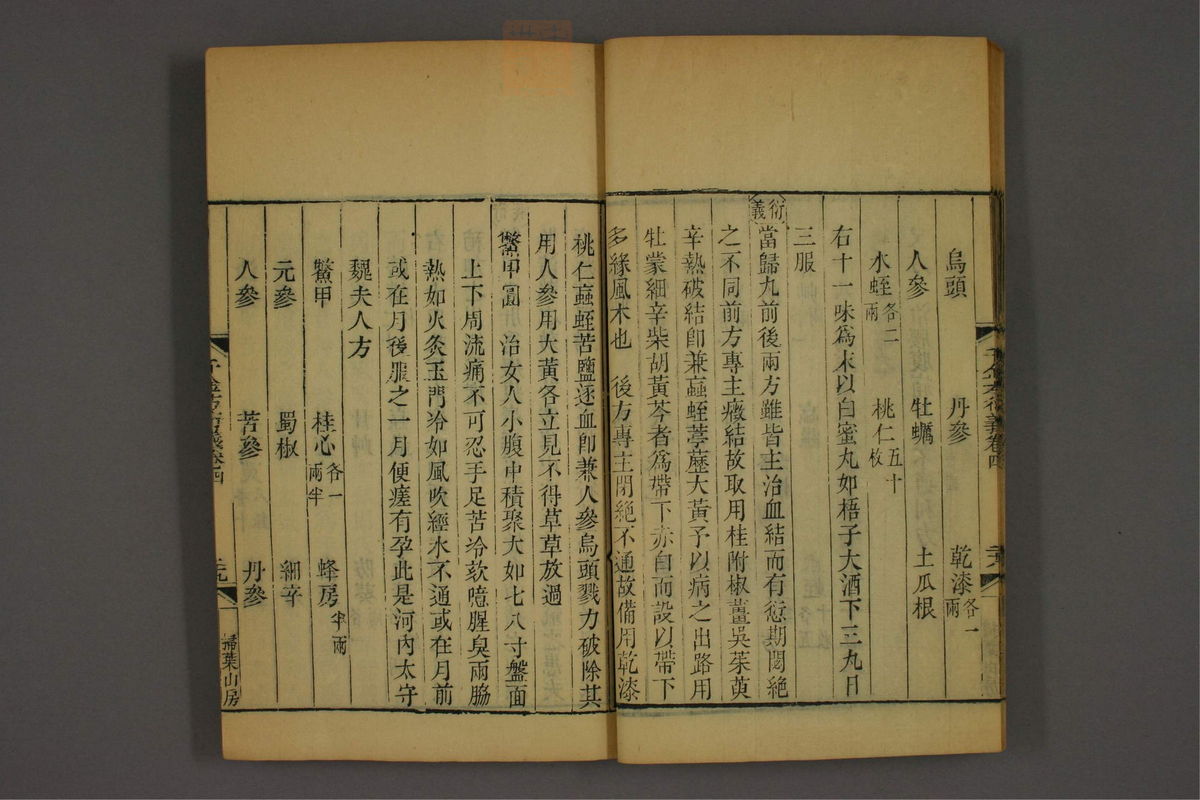 烏頭　丹參　乾漆各一兩
人參　牡蠣　土瓜根
水蛭各二兩　桃仁五十枚
右十一味爲末以白蜜丸如梧子大酒下三丸日
三服
衍義
當歸丸前後兩方雖皆主治血結而有愆期閟絶
之不同前方專主癥結故取用桂附椒薑吳茱萸
辛熱破結卽兼蝱蛭葶藶大黃予以病之出路用
牡蒙細辛柴胡黃芩者爲帶下赤白而設以帶下
多緣風木也　後方專主閉絶不通故備用乾漆
桃仁蝱蛭苦鹽逐血卽兼人參烏頭戮力破除其
用人參用大黃各立見不得草草放過
鱉甲圓　治女人小腹中積聚大如七八寸盤面
上下周流痛不可忍手足苦冷欬噫腥臭兩脇
熱如火灸玉門冷如風吹經水不通或在月前
或在月後服之一月便瘥有孕此是河內太守
魏夫人方
鱉甲　桂心各一兩半　蜂房半兩
元參　蜀椒　細辛
人參　苦參　丹參
掃葉山房